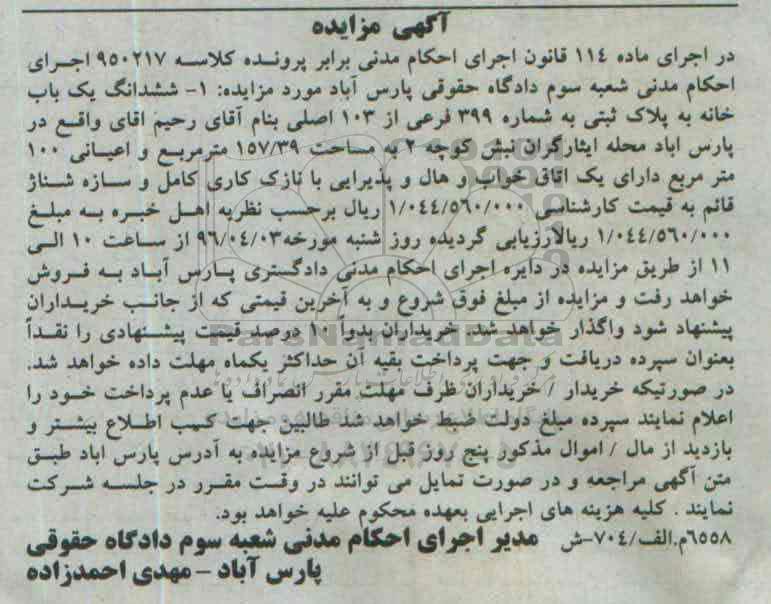 آگهی مزایده
در اجرای ماده ۱۱۴ قانون اجرای احکام مدنی برابر پرونده کلاسه ۹۵۰۲۱۷ اجرای
احکام مدنی شعبه سوم دادگاه حقوقی پارس آباد مورد مزایده: ۱- ششدانگ یک باب
خانه به پلاک ثبتی به شماره ۳۹۹ فرعی از ۱۰۳ اصلی بنام آقای رحیم اقای واقع در
پارس اباد محله ایثارگران نبش کوچه ۲ به مساحت ۱۵۷/۳۹ مترمربع و اعیانی ۱۰۰
متر مربع دارای یک اتاق خواب و هال و پذیرایی با نازک کاری کامل و سازه شناژ
قائم به قیمت کارشناسی ۱/۰۴۴/۵۶۰/۰۰۰ ریال برحسب نظریه اهل خبره به مبلغ
۱/۰۴۴/۵۶۰/۰۰۰ ریالارزیابی گردیده روز شنبه مورخه۹۶/۰۴/۰۳ از ساعت ۱۰ الی
۱۱ از طریق مزایده در دایره اجرای احکام مدنی دادگستری پارس آباد به فروش
خواهد رفت و مزایده از مبلغ فوق شروع و به آخرین قیمتی که از جانب خریداران
پیشنهاد شود واگذار خواهد شد. خریداران بدواً ۱۰ درصد قیمت پیشنهادی را نقداً
بعنوان سپرده دریافت و جهت پرداخت بقیه آن حداکثر یکماه مهلت داده خواهد شد.
در صورتیکه خریدار / خریداران ظرف مهلت مقرر انصراف یا عدم پرداخت خود را
اعلام نمایند سپرده مبلغ دولت ضبط خواهد شد طالبین جهت کسب اطلاع بیشتر و
بازدید از مال / اموال مذکور پنج روز قبل از شروع مزایده به آدرس پارس اباد طبق
متن آگهی مراجعه و در صورت تمایل می توانند در وقت مقرر در جلسه شرکت
نمایند . کلیه هزینه های اجرایی بعهده محکوم علیه خواهد بود.
۶۵۵۸م.الف/۷۰۴-ش مدیر اجرای احکام مدنی شعبه سوم دادگاه حقوقی
پارس آباد - مهدی احمدزاده
ParsNamadData